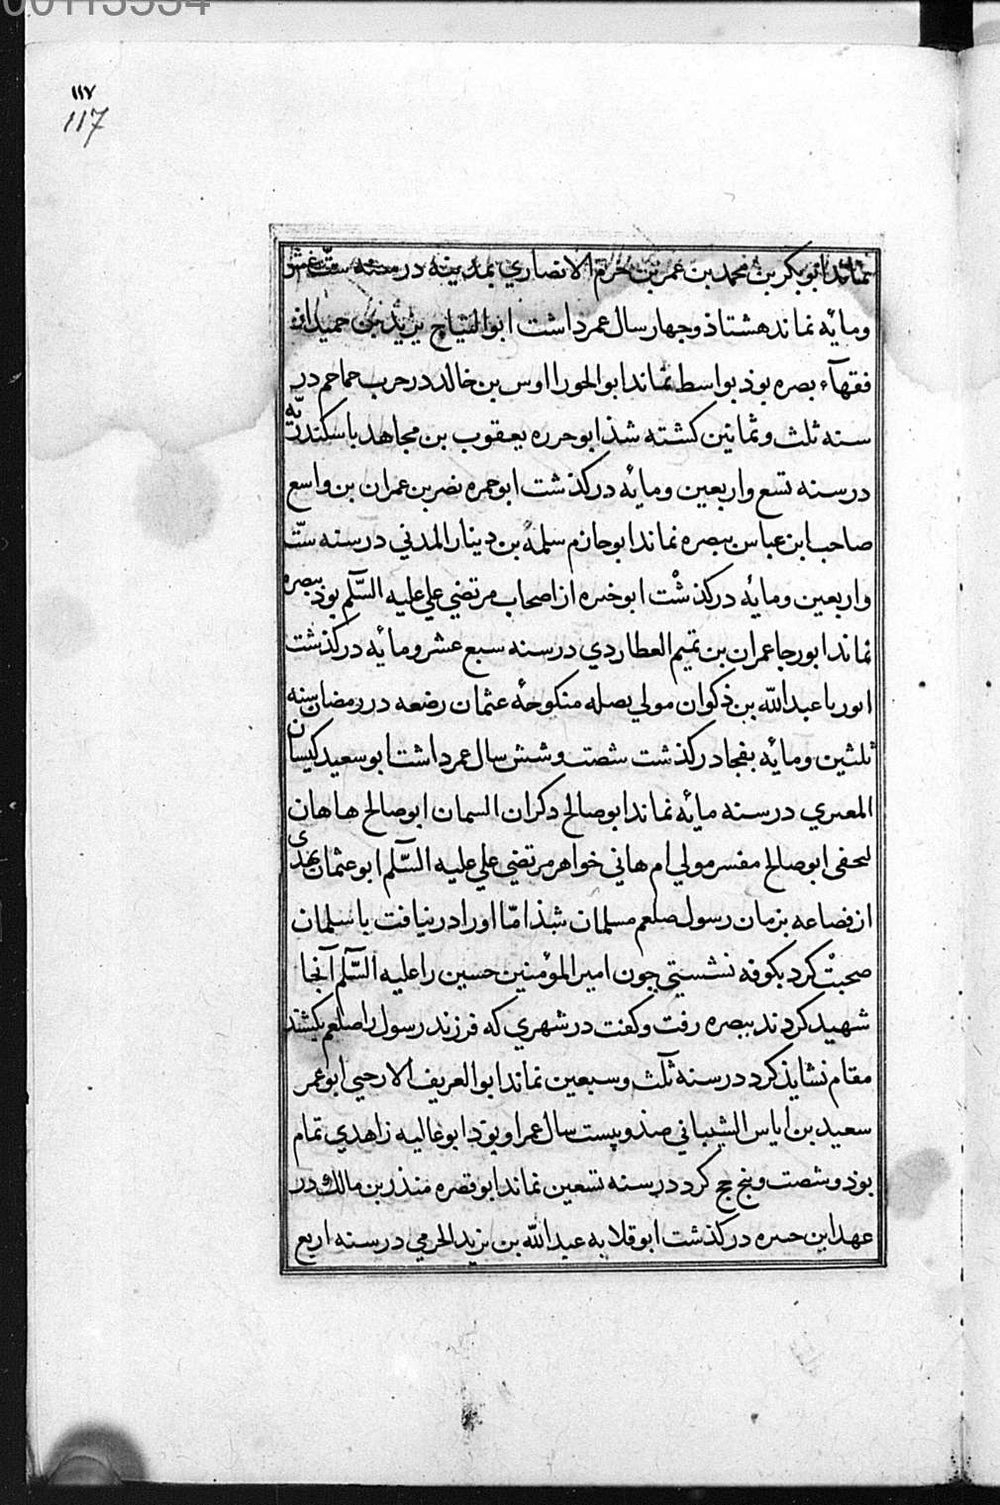 00113334
١١٧
117
نماند ابو بكر بن محمد بن عمر بن حزم الانصاري بمدينه در سنه ستّ عشر
ومائه نماند هشتاذ وچهار سال عمر داشت ابو التياح يزيد بن حميد از
فقهآء بصره بوذ بواسط نماند ابو الحورا اوس بن خالد در حرب حماحم در
سنه ثلث وثمانين كشته شذ ابو حرره يعقوب بن مجاهد باسكندريّه
در سنه تسع واربعين ومائه در كذشت ابو حمره نصر بن عمران بن واسع
صاحب ابن عباس ببصره نماند ابو حازم سلمه بن دينار المدني در سنه ستّ
واربعين ومائه در كذشت ابو خيره از اصحاب مرتضي علي عليه السّلم بوذ ببصره
نماند ابو رجا عمران بن تميم العطاردي در سنه سبع عشر ومائه در كذشت
عبد اللّه بن ذكوان مولي منكوحهٔ عثمان رضعه در رمضان سنه
ثلثين ومائه بفجا در كذشت شصت وشش سال عمر داشت ابو سعيد كيسان
المعبري در سنه مائه نماند ابو صالح دكران السمان ابو صالح هاهان
لحفى ابو صالح مفسر مولي ام هاني خواهر مرتضي علي عليه السّلم ابو عثمان نهدى
از قضاعه بزمان رسول صلعم مسلمان شذ امّا اورا در نيافت با سلمان
صحبت كرد بكوفه نشستي چون امير المؤمنين حسين را عليه السّلم آنجا
شهيد كردند ببصره رفت وكفت در شهري كه فرزند رسول را صلعم بكشند
مقام نشايذ كرد در سنه ثلث وسبعين نماند ابو العريف الارحبي ابو عمر
سعيد بن اياس الشيباني صذ وبيست سال عمر او بوذ ابو عاليه زاهدي تمام
بوذ وشصت وپنج حج كرد در سنه تسعين نماند ابو قصره منذر بن مالك در
عهد ابن حبيره در كذشت ابو قلابه عبد اللّه بن يزيد الحرمي در سنه اربع